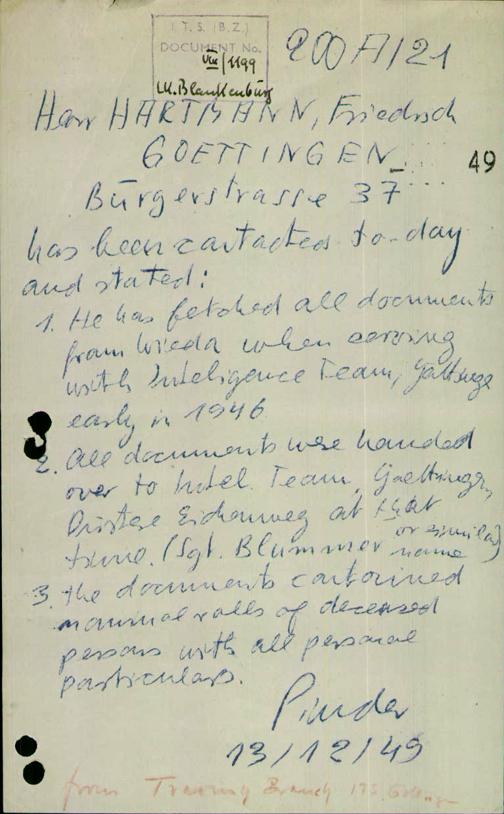 I.T.S. (B.Z.)
DOCUMENT No.
VIII/1199
Kr. Blankenburg
200 A/21
Herr HARTMANN, Friedrich
GOETTINGEN
49
Bürgerstrasse 37
has been contacted to-day
and stated:
1. He has fetched all documents
from Wieda when serving
with Inteligence Team, Göttinge
early in 1946
2. All documents were handed
over to Intel. Team, Goettingen,
Düstere Eichenweg at that
time. (Sgt. Blummer or similar name)
3. the documents contained
nominal rolls of deceased
persons with all personal
particulars.
Pinder
13/12/49
from Tracing Branch ITS